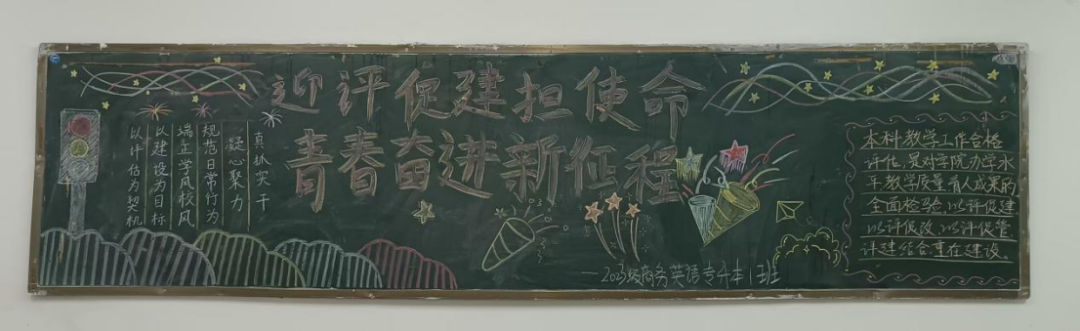 迎评促建担使命
青春奋进新征程
真抓实干
凝心聚力
规范日常行为
端正学风校风
以建设为目标
以评估为契机
本科教学工作合格
评估,是对学院办学水
平教学质量育人成果的
全面检验,以评促建
以评促改,以评促管
评建结合重在建设。
2023级商务英语专升本1班